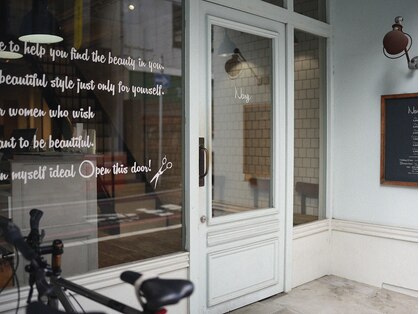 e to help you find the beauty in you.
beautiful style just only for yourself.
r women who wish
ant to be beautiful.
n myself ideal Open this door!